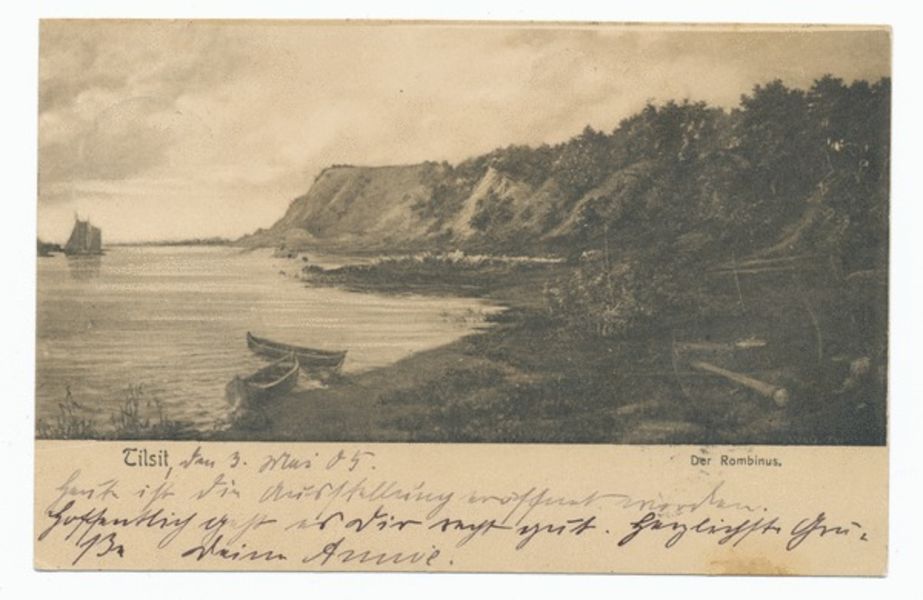 Tilsit, den 3. Mai 05.
Der Rombinus.
Heute ist die Ausstellung eröffnet worden.
Hoffentlich geht es Dir recht gut. Herzlichste Grü-
ße Deine